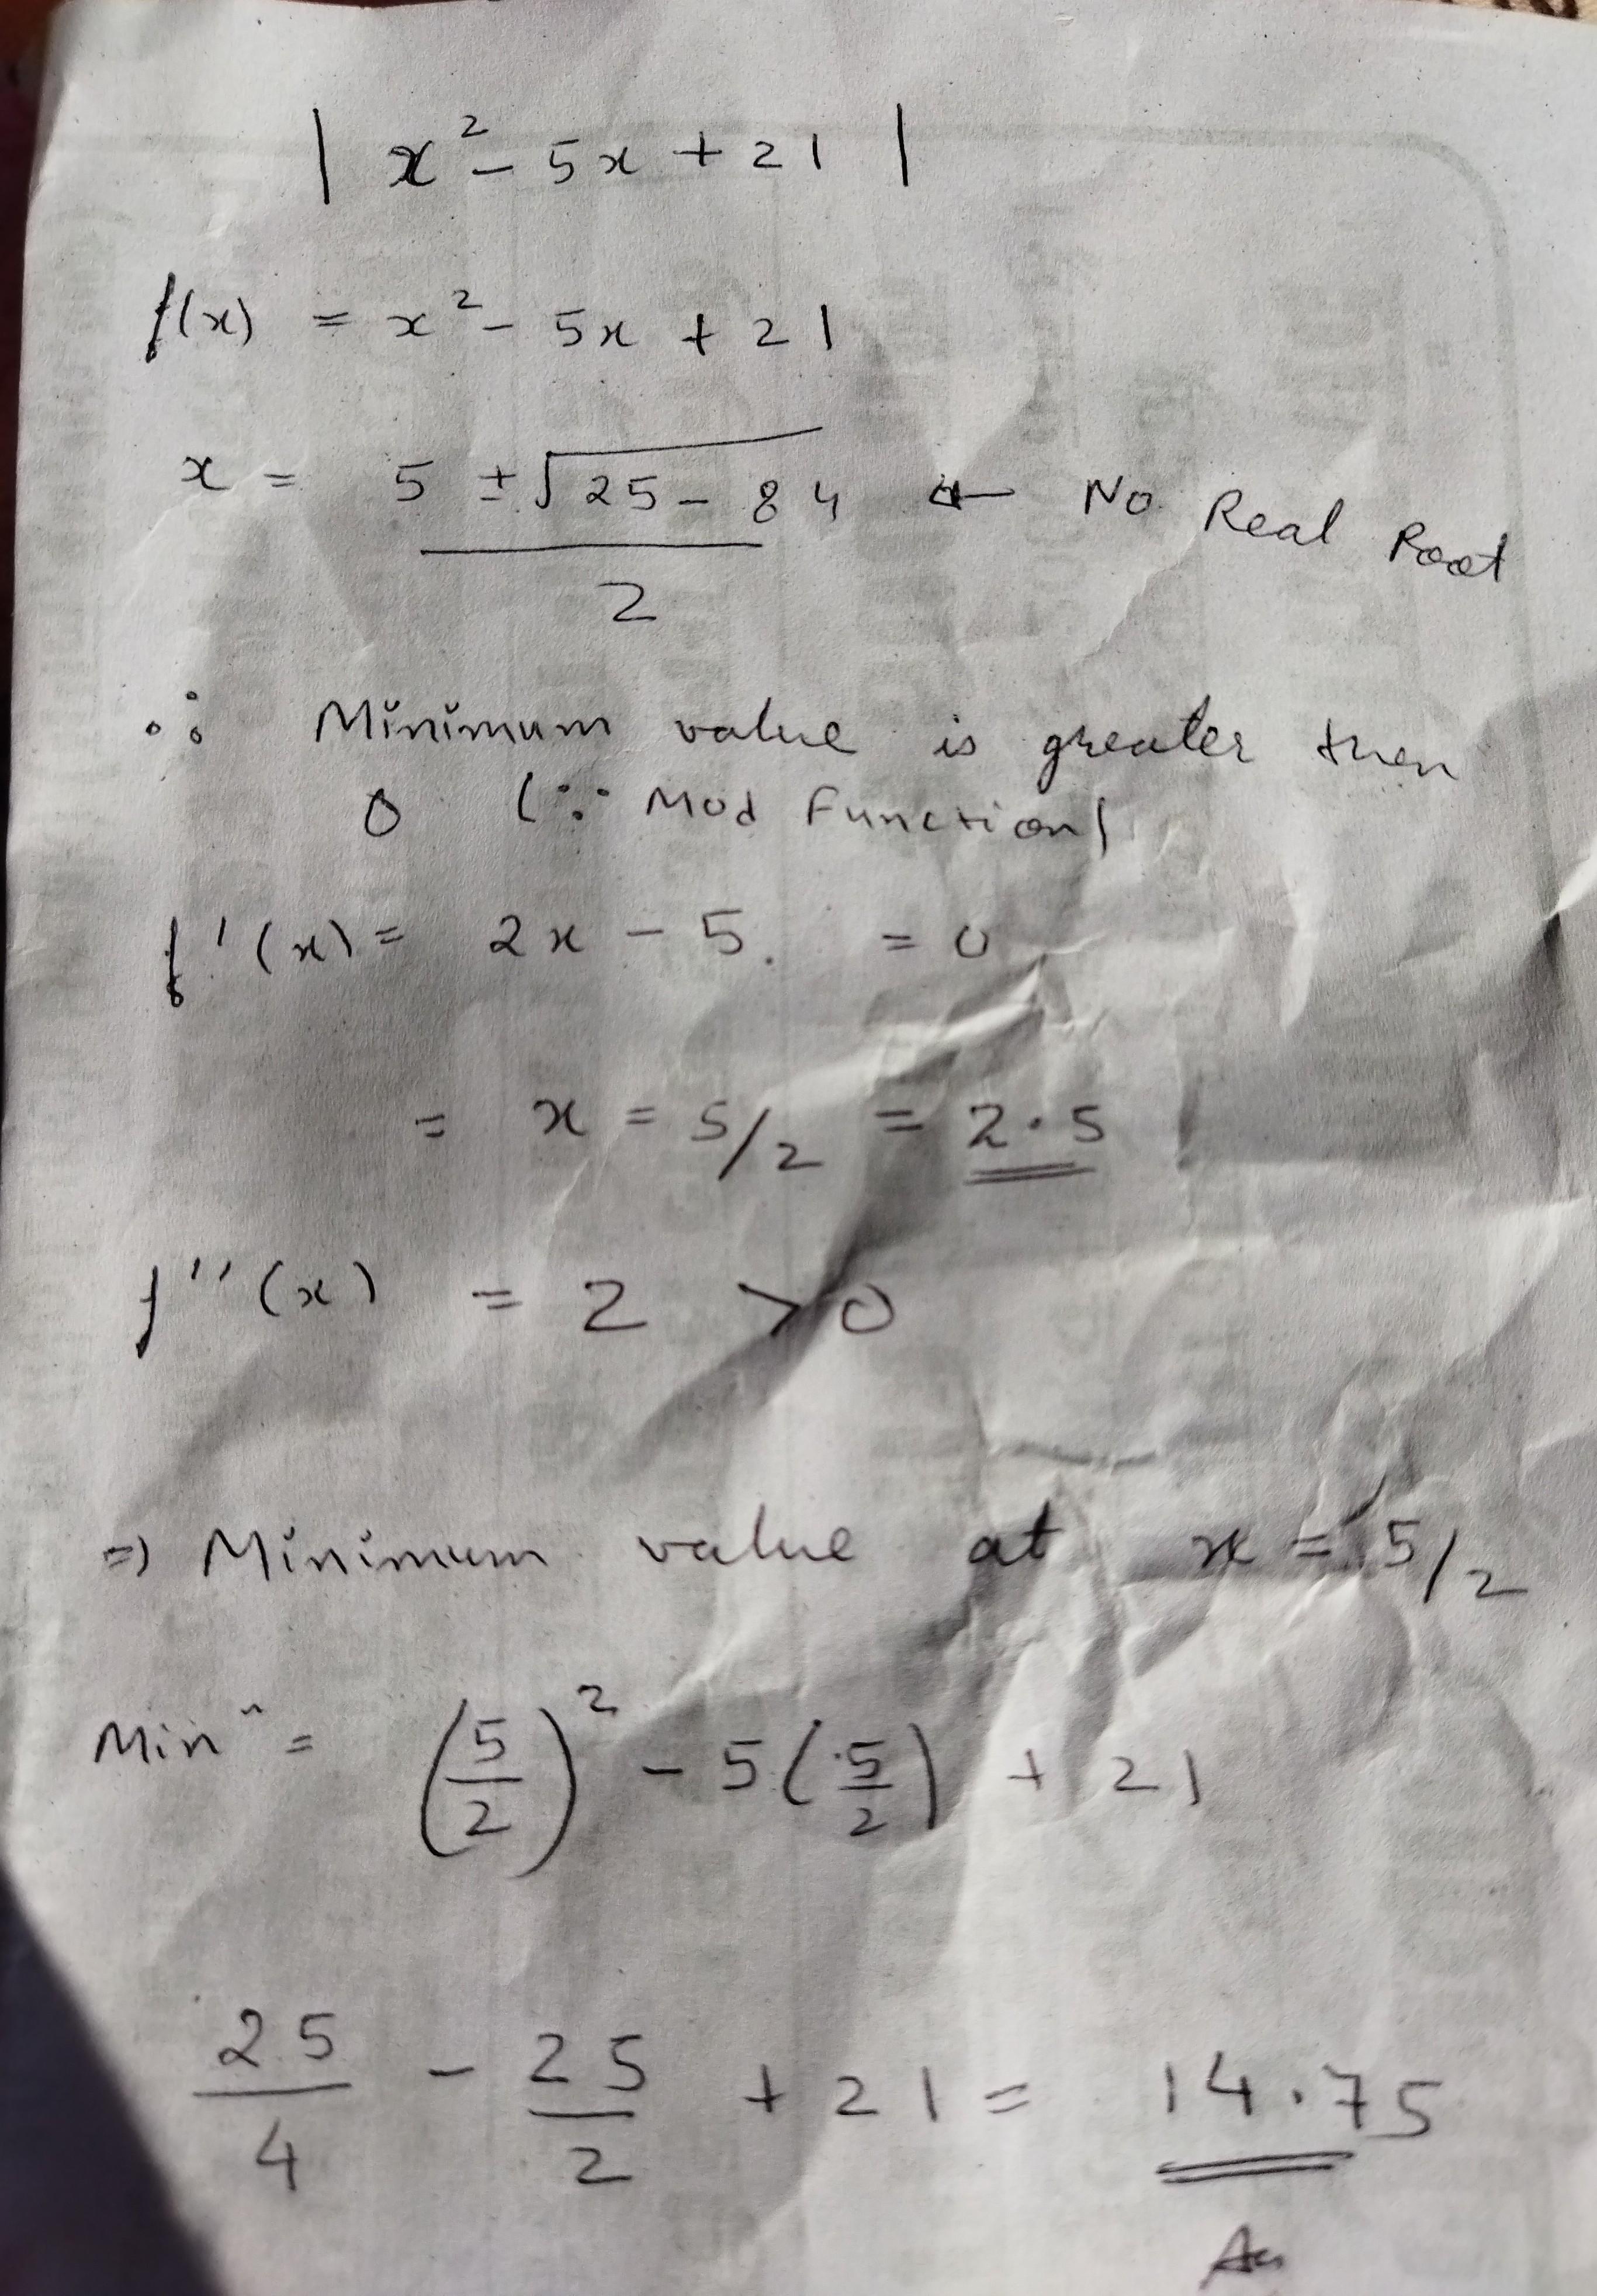 | x² - 5x + 21 |
f(x) = x² - 5x + 21
x = 5 ± √25 - 84 ← No Real Root
2
∴ Minimum value is greater then
0 (∵ Mod Function)
f'(x) = 2x - 5. = 0
= x = 5/2 = 2.5
f''(x) = 2 > 0
⇒ Minimum value at x = 5/2
Min^m = (5/2)² - 5(5/2) + 21
25/4 - 25/2 + 21 = 14.75